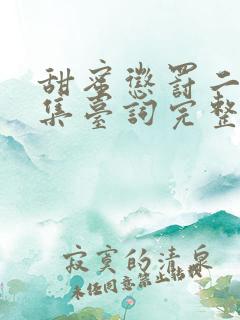 甜蜜懲罰二
集臺詞完整
寂寞的清泉
未经同意禁止转载